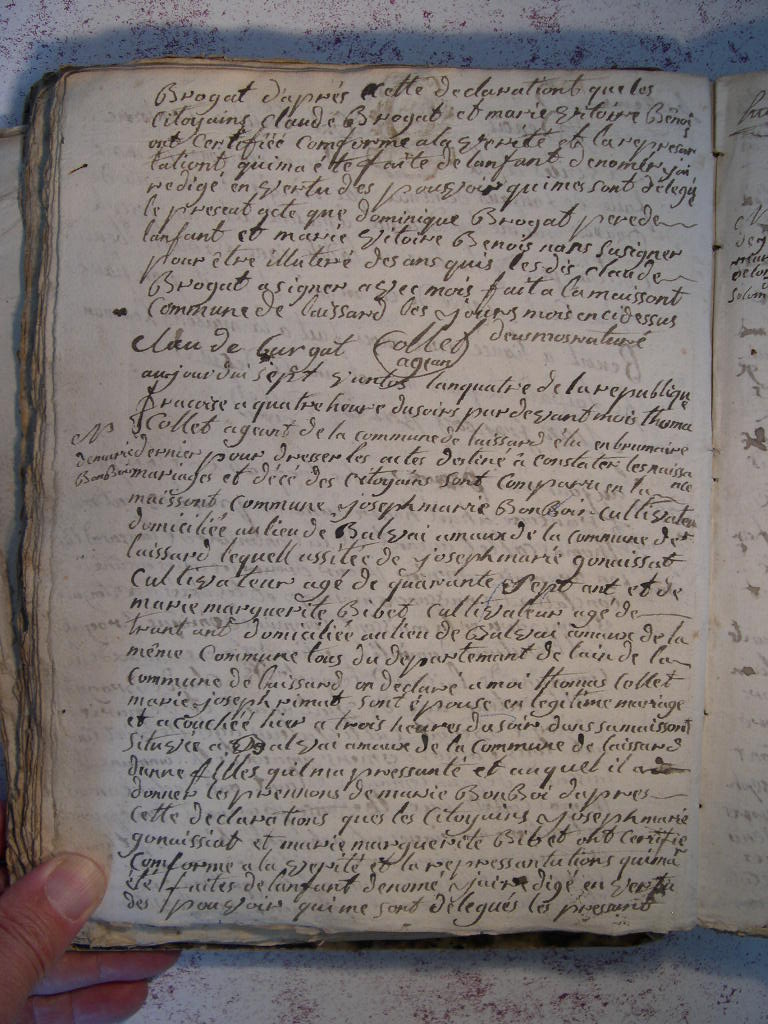 Brogat d'après cette declarationt que les
Citoyains Claude Brogat et marie Vitoire Benoi
ont Certifiée Comforme ala verité et la represan
tationt qui ma été faite de lanfant denomé jai
redigé en vertu des pouvoir qui me sont délegué
le present acte que dominique Brogat pere de
lanfant et marie Vitoire Benois nans su signer
pour être illuteré des ans quis les dis claude
Brogat a signer avec mois fait a la maissont
Commune de laissard les jours mois en ci dessus
Claude burgat Collet
agean
aujourdui sept vantos lanquatre de la republique
fracoise a quatre heure du soirs par devant mois thoma
Collet ageant de la commune de laissard élu en brumaire
N
de marie
BonBoi
dernier pour dresser les actes destiné à constater les naissa
nce
mariages et décé des Citoyains sont Comparu en la
maissont Commune josephmarie BonBoir Cultivateu
domiciliée au lieu de Balvai amaux de la commune de
laissard lequell assitée de josephmarie gonaissat
Cultivateur agé de quarante sept ant et de
marie marguerite Bibet Cultivateur agé de
trant ant domiciliée au lieu de Balvai amaux de la
même Commune tous du departemant de lain de la
Commune de laissard on declaré a moi thomas Collet
marie joseph rimat sont épouse en legitime mariage
et acouchée hier a trois heures du soir dans sa maissont
situvée a Balvai amaux de la Commune de laissard
dunne filles quil ma pressanté et auquel il a
donner les prennons de marie BonBoi dapres
Cette declarations ques les Citoyains josephmarie
gonaissat et marie marguerite Bibet ont Certifie
Comforme a la verité et la repressantations qui ma
été faites de lanfant denomé jai redigé en vertu
des pouvoir qui me sont délegués les pressant